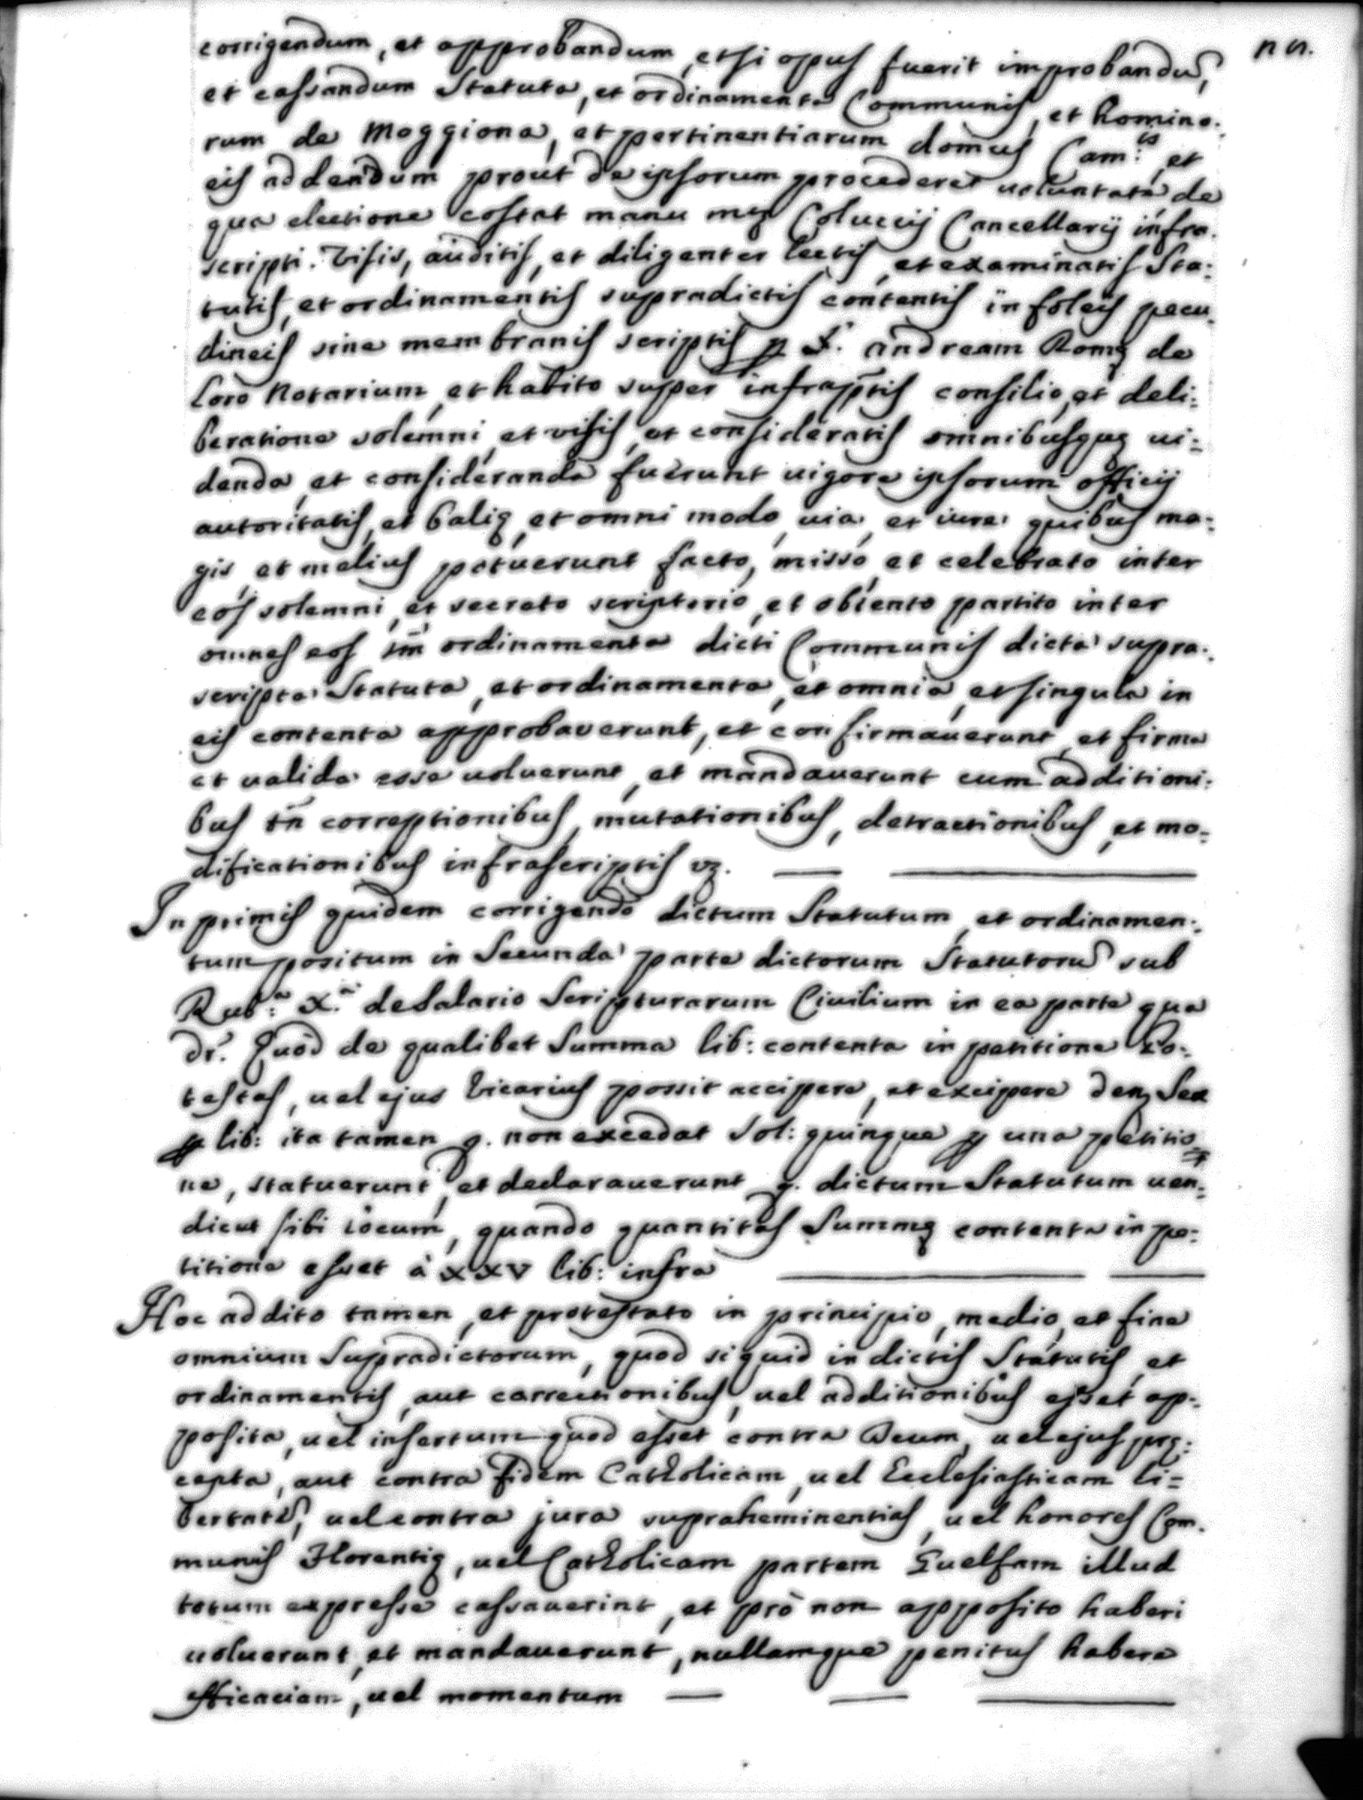 corrigendum, et approbandum, et si opus fuerit improbandũ,
et cassandum Statuta, et ordinamenta Communis, et homino:
rum de Moggiona, et pertinentiarum domus Cam:is et
eis addendum prout de ipsorum procederet uoluntate de
qua electione costat manu mei Coluccij Cancellarij infra.
scripti. Visis, auditis, et diligenter lectis, et examinatis Sta:
tutis, et ordinamentis supradictis contentis in foleis pecu
dineis sine membranis scriptis p S. andream Romę de
Loro Notarium, et habito super infraptis consilio, et deli:
beratione solemni, et visis, et consideratis omnibusque ui=
denda, et consideranda fuerunt uigore ipsorum officij
autoritatis, et balię, et omni modo, uia, et iure quibus ma:
gis, et melius potuerunt facto, misso, et celebrato inter
eos solemni, et secreto scriptorio, et obtento partito inter
omnes eos tm̃ ordinamenta dicti Communis dicta supra:
scripta Statuta, et ordinamenta, et omnia, et singula in
eis contenta approbaverunt, et confirmauerunt, et firma
et ualida esse uoluerunt, et mandauerunt cum additioni:
bus tñ correptionibus, mutationibus, detractionibus, et mo=
dificationibus infrascriptis vz.
In primis quidem corrigendo dictum Statutum, et ordinamen:
tum positum in Secunda parte dictorum Statutorũ sub
Rub:a X.a de Salario Scripturarum Ciuilium in ea parte qua
dr. Quod de qualibet Summa lib: contenta in petitione Po=
testas, uel ejus Vicarius possit accipere, et excipere den Sex
p lib: ita tamen q. non excedat Sol: quinque p una petitio=
ne, statuerunt, et declarauerunt q. dictum Statutum uen=
dicet sibi locum, quando quantitas Summę contenta in pe:
titione esset à XXV lib: infra
Hoc addito tamen, et protestato in principio, medio, et fine
omnium Supradictorum, quod si quid in dictis Statutis, et
ordinamentis, aut correctionibus, uel additionibus esset op=
posita, uel insertum quod esset contra Deum, uel ejus prę:
cepta, aut contra fidem Catholicam, uel Ecclesiasticam li=
bertatẽ, uel contra jura supraheminentias, uel honores Com.
munis Florentię, uel Catholicam partem Guelfam illud
totum expresse cassauerint, et prò non apposito haberi
uoluerunt, et mandauerunt, nullamque penitus habere
efficaciam, uel momentum